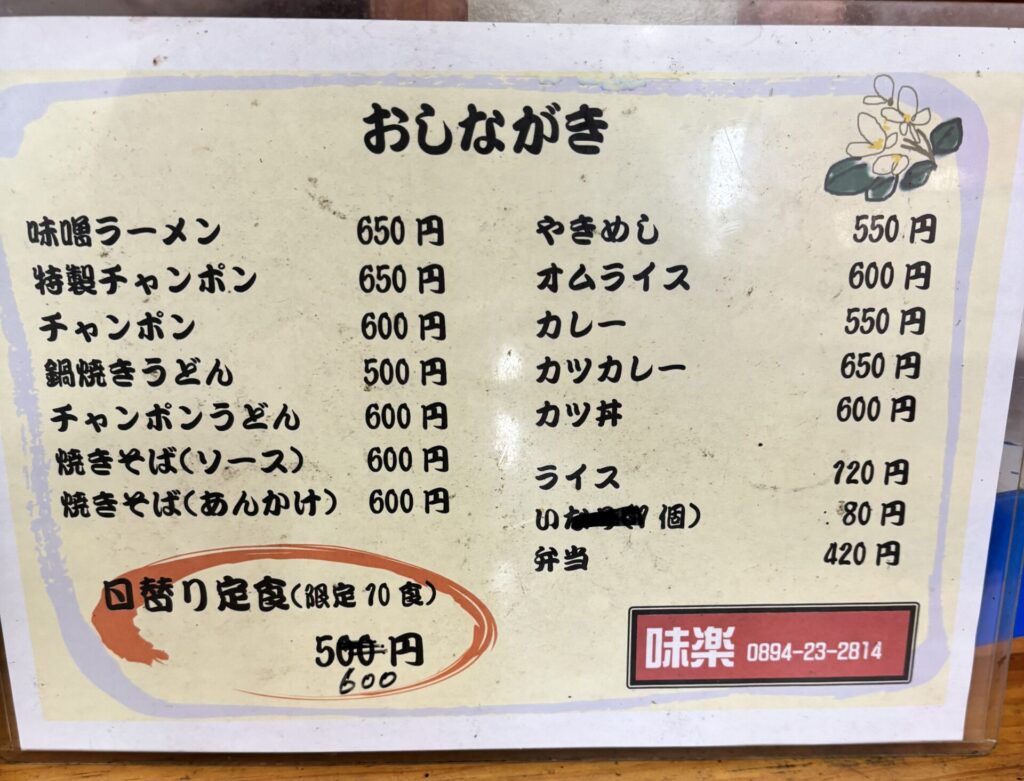 おしながき
味噌ラーメン 650円
特製チャンポン 650円
チャンポン 600円
鍋焼きうどん 500円
チャンポンうどん 600円
焼きそば(ソース) 600円
焼きそば(あんかけ) 600円
日替り定食(限定10食)
500円
600
やきめし 550円
オムライス 600円
カレー 550円
カツカレー 650円
カツ丼 600円
ライス 120円
い 個) 80円
弁当 420円
味楽 0894-23-2814